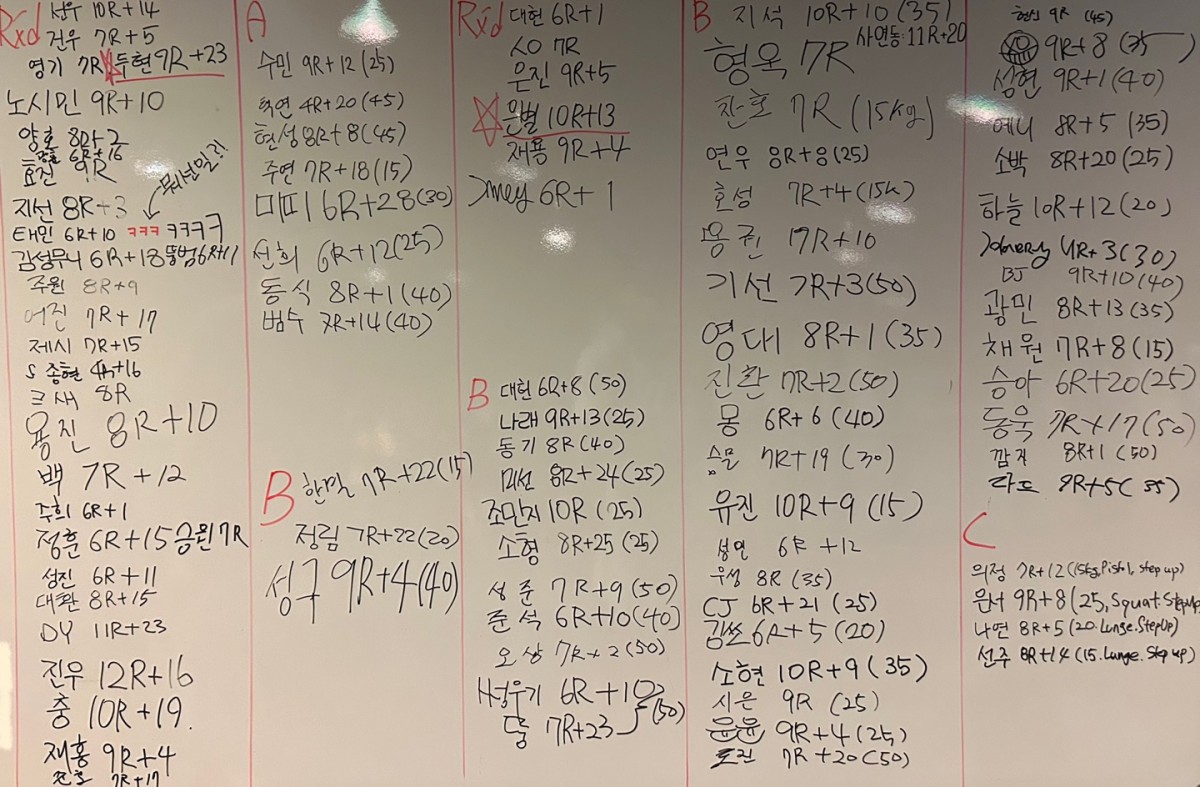 Rxd
선우 10R+14
건우 7R+5
영기 7R
두현 9R+23
노시민 9R+10
양호 8R+2
6R+16
효진 9R
뭐보일?!
지선 8R+3
태민 6R+10 ㅋㅋㅋ ㅋㅋㅋㅋ
김성무니 6R+18 뚱범 6R+11
주원 8R+9
어진 7R+17
제시 7R+15
S 종현 4R+16
크새 8R
용진 8R+10
백 7R+12
주희 6R+1
정훈 6R+15 승원 7R
성진 6R+11
대환 8R+15
DY 11R+23
진우 12R+16
충 10R+19
재홍 9R+4
7R+17
A
수민 9R+12 (25)
4R+20 (45)
현성 8R+8 (45)
주연 7R+18 (15)
미피 6R+28 (30)
선희 6R+12 (25)
동식 8R+1 (40)
범수 7R+14 (40)
B
한밀 7R+22 (15)
정림 7R+22 (20)
성구 9R+4 (40)
Rxd
대헌 6R+1
SO 7R
은진 9R+5
은별 10R+13
재용 9R+4
6R+1
B
대헌 6R+8 (50)
나래 9R+13 (25)
동기 8R (40)
미선 8R+24 (25)
조만지 10R (25)
소형 8R+25 (25)
성준 7R+9 (50)
준석 6R+10 (40)
오상 7R+2 (50)
서성우기 6R+10
둥 7R+23 (50)
B
지석 10R+10 (35)
사연동: 11R+20
형옥 7R
찬호 7R (15kg)
연우 8R+8 (25)
효성 7R+4 (15k)
몽권 17R+10
기선 7R+3 (50)
영대 8R+1 (35)
진환 7R+2 (50)
몽 6R+6 (40)
승모 7R+19 (30)
유진 10R+9 (15)
성인 6R+12
우성 8R (35)
CJ 6R+21 (25)
김쓰 6R+5 (20)
소현 10R+9 (35)
시은 9R (25)
윤윤 9R+4 (25)
도진 7R+20 (50)
현신 9R (45)
9R+8 (35)
성현 9R+1 (40)
에니 8R+5 (35)
소박 8R+20 (25)
하늘 10R+12 (20)
4R+3 (30)
BJ 9R+10 (40)
광민 8R+13 (35)
채원 7R+8 (15)
승아 6R+20 (25)
동욱 7R+17 (50)
깜지 8R+1 (50)
라드 9R+5 (35)
C
의정 7R+12 (15kg, Pistol, step up)
원너 9R+8 (25, Squat. StepUp
나연 8R+5 (20. Lunge. StepUp)
선주 8R+14 (15. Lunge. Step up)